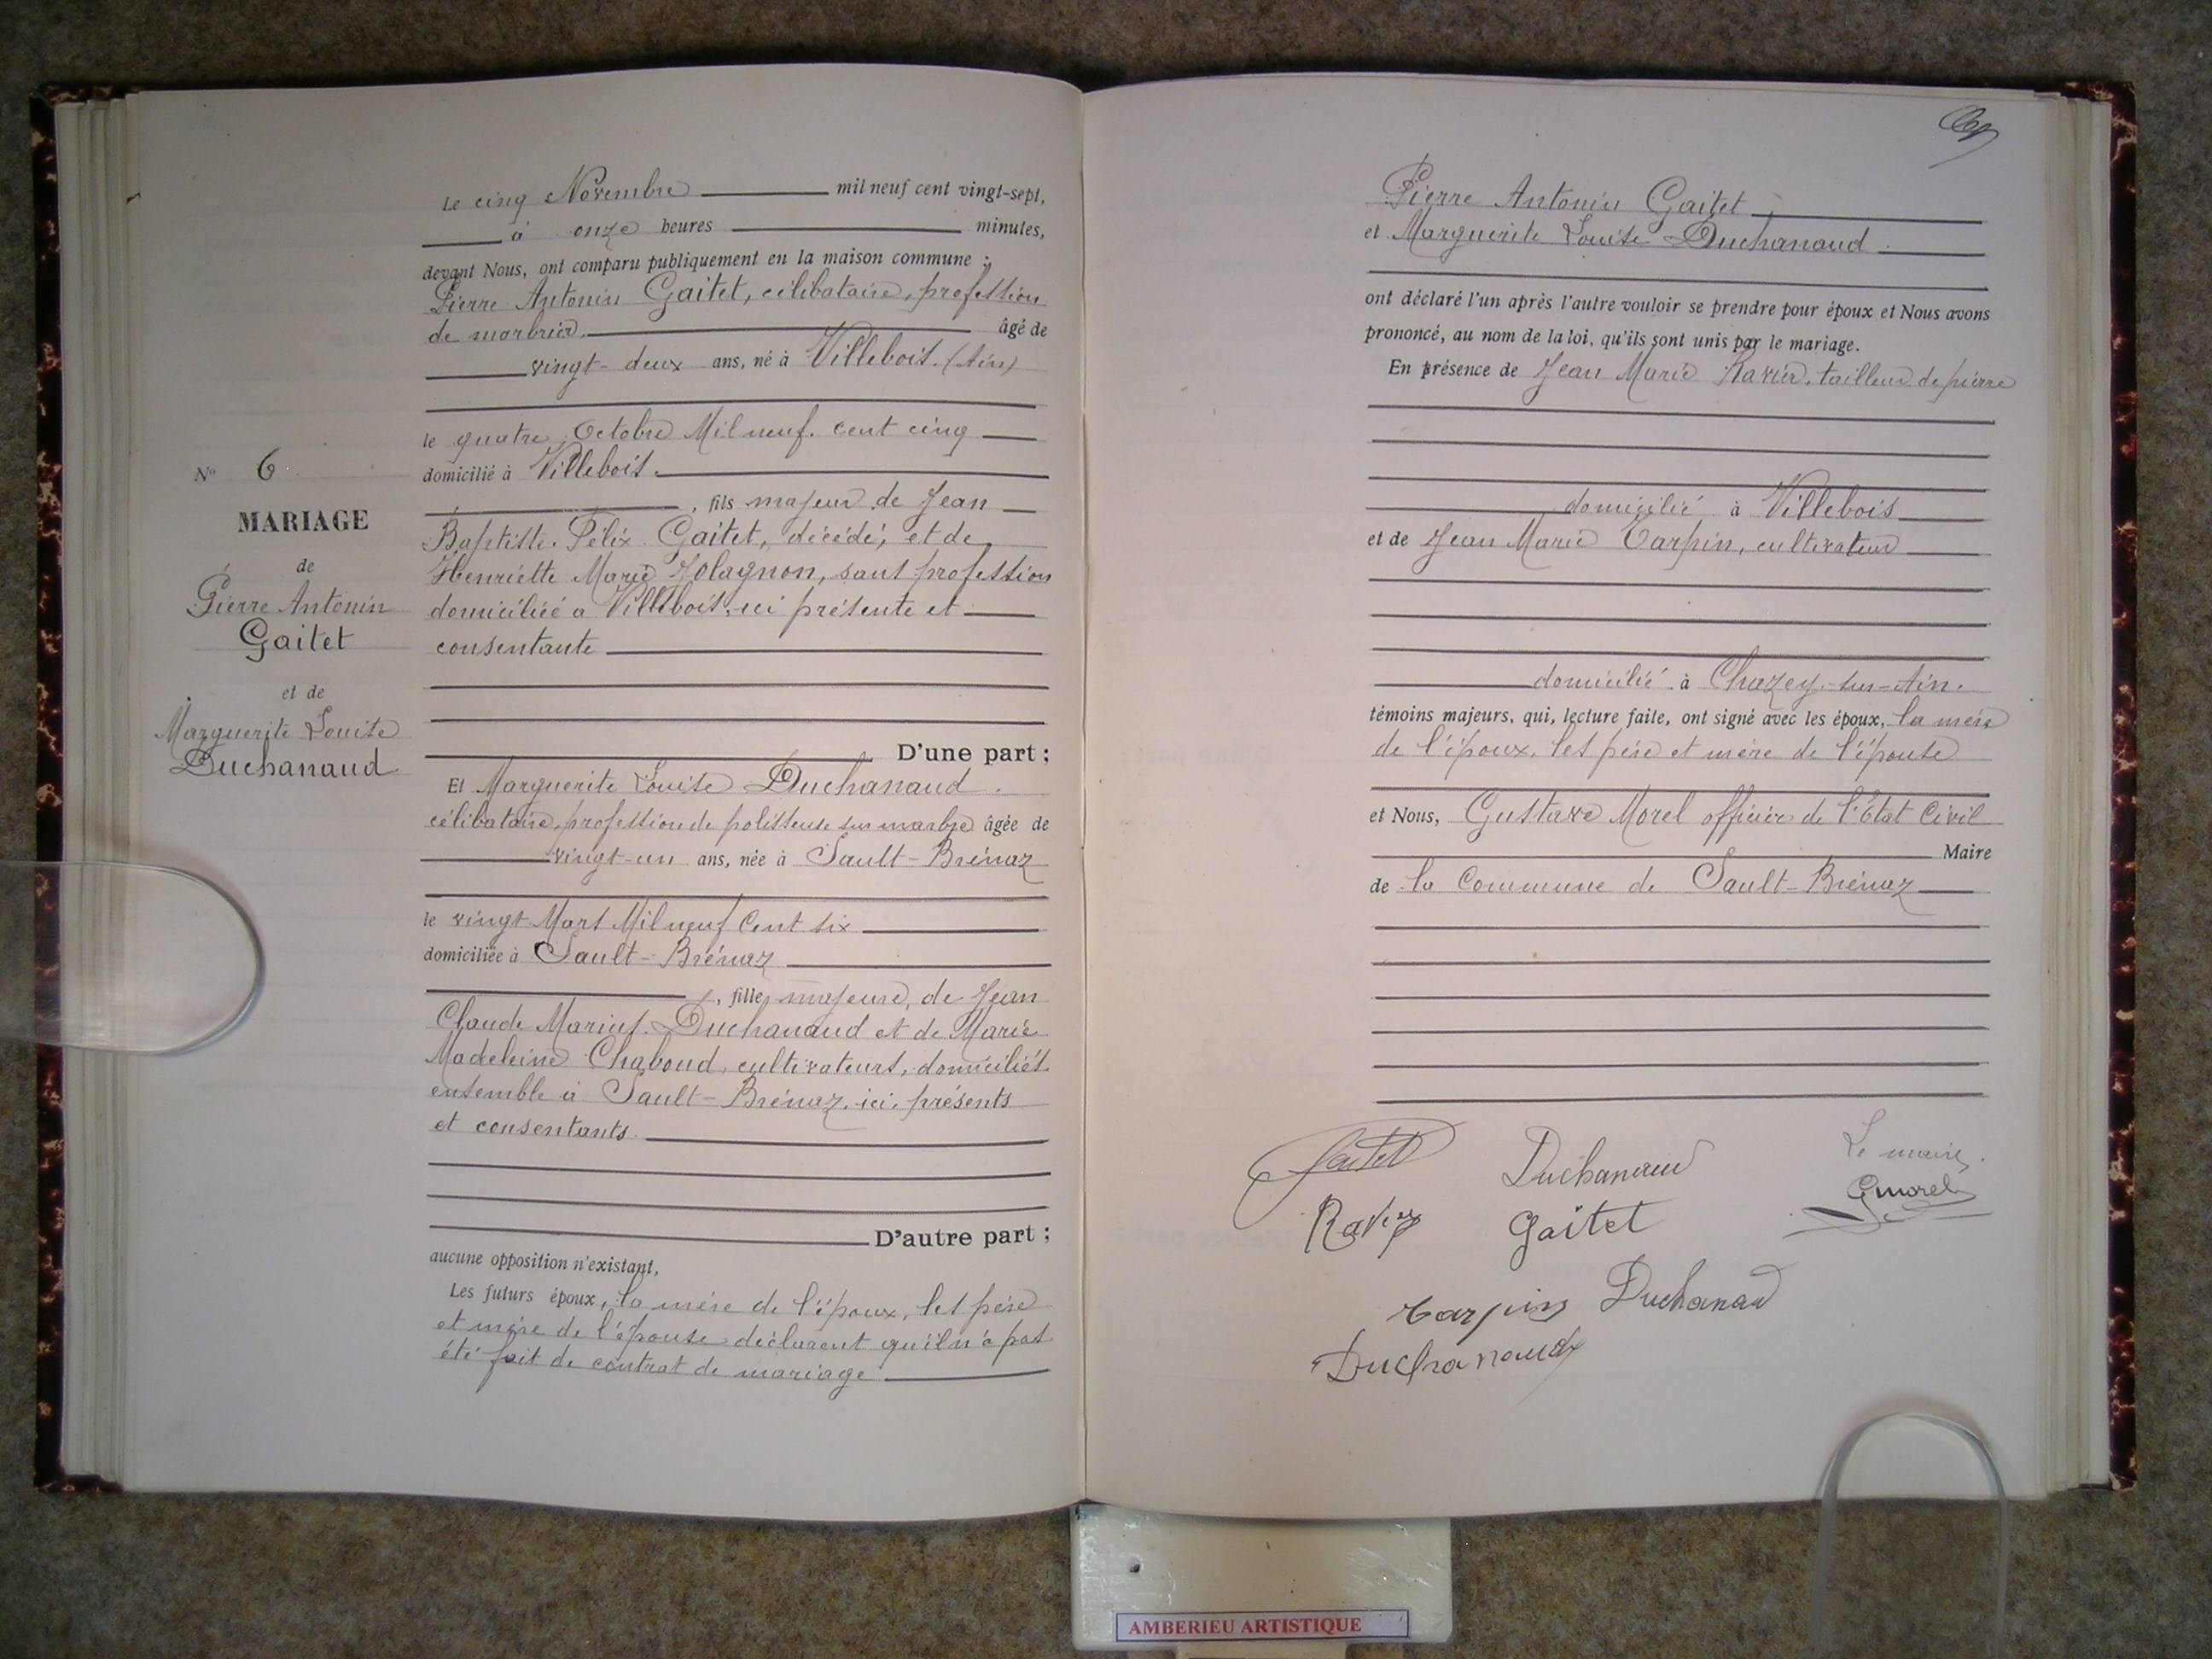 Le cinq Novembre mil neuf cent vingt-sept,
à onze heures minutes,
devant Nous, ont comparu publiquement en la maison commune :
Pierre Antonin Gaitet, célibataire, profession
de marbrier, âgé de
vingt-deux ans, né à Villebois. (Ain)
le quatre Octobre Mil neuf cent cinq
domicilié à Villebois.
, fils majeur de Jean
Baptiste Félix Gaitet, décédé, et de
Henriette Marie Jolagnon, sans profession
domiciliée à Villebois, ici présente et
consentante
D'une part ;
Et Marguerite Louise Duchanaud.
célibataire, profession de polisseuse sur marbre âgée de
vingt-un ans, née à Sault-Brénaz
le vingt Mars Mil neuf Cent six
domiciliée à Sault-Brénaz
, fille majeure, de Jean
Claude Marius Duchanaud et de Marie
Madeleine Chaboud, cultivateurs, domiciliés
ensemble à Sault-Brénaz, ici présents
et consentants.
D'autre part ;
aucune opposition n'existant,
Les futurs époux, la mère de l'époux, les père
et mère de l'épouse déclarent qu'il n'a pas
été fait de contrat de mariage
No 6
MARIAGE
de
Pierre Antonin
Gaitet
et de
Marguerite Louise
Duchanaud
Pierre Antonin Gaitet
et Marguerite Louise Duchanaud.
ont déclaré l'un après l'autre vouloir se prendre pour époux et Nous avons
prononcé, au nom de la loi, qu'ils sont unis par le mariage.
En présence de Jean Marie Ravier, tailleur de pierre
domicilié à Villebois
et de Jean Marie Carpin, cultivateur
domicilié à Chazey-sur-Ain.
témoins majeurs, qui, lecture faite, ont signé avec les époux, la mère
de l'époux, les père et mère de l'épouse
et Nous, Gustave Morel officier de l'État Civil
Maire
de la Commune de Sault-Brénaz
Gaitet Duchanaud Le maire,
Gmorel
Ravier Gaitet
Carpin Duchanaud
Duchanaud
AMBERIEU ARTISTIQUE